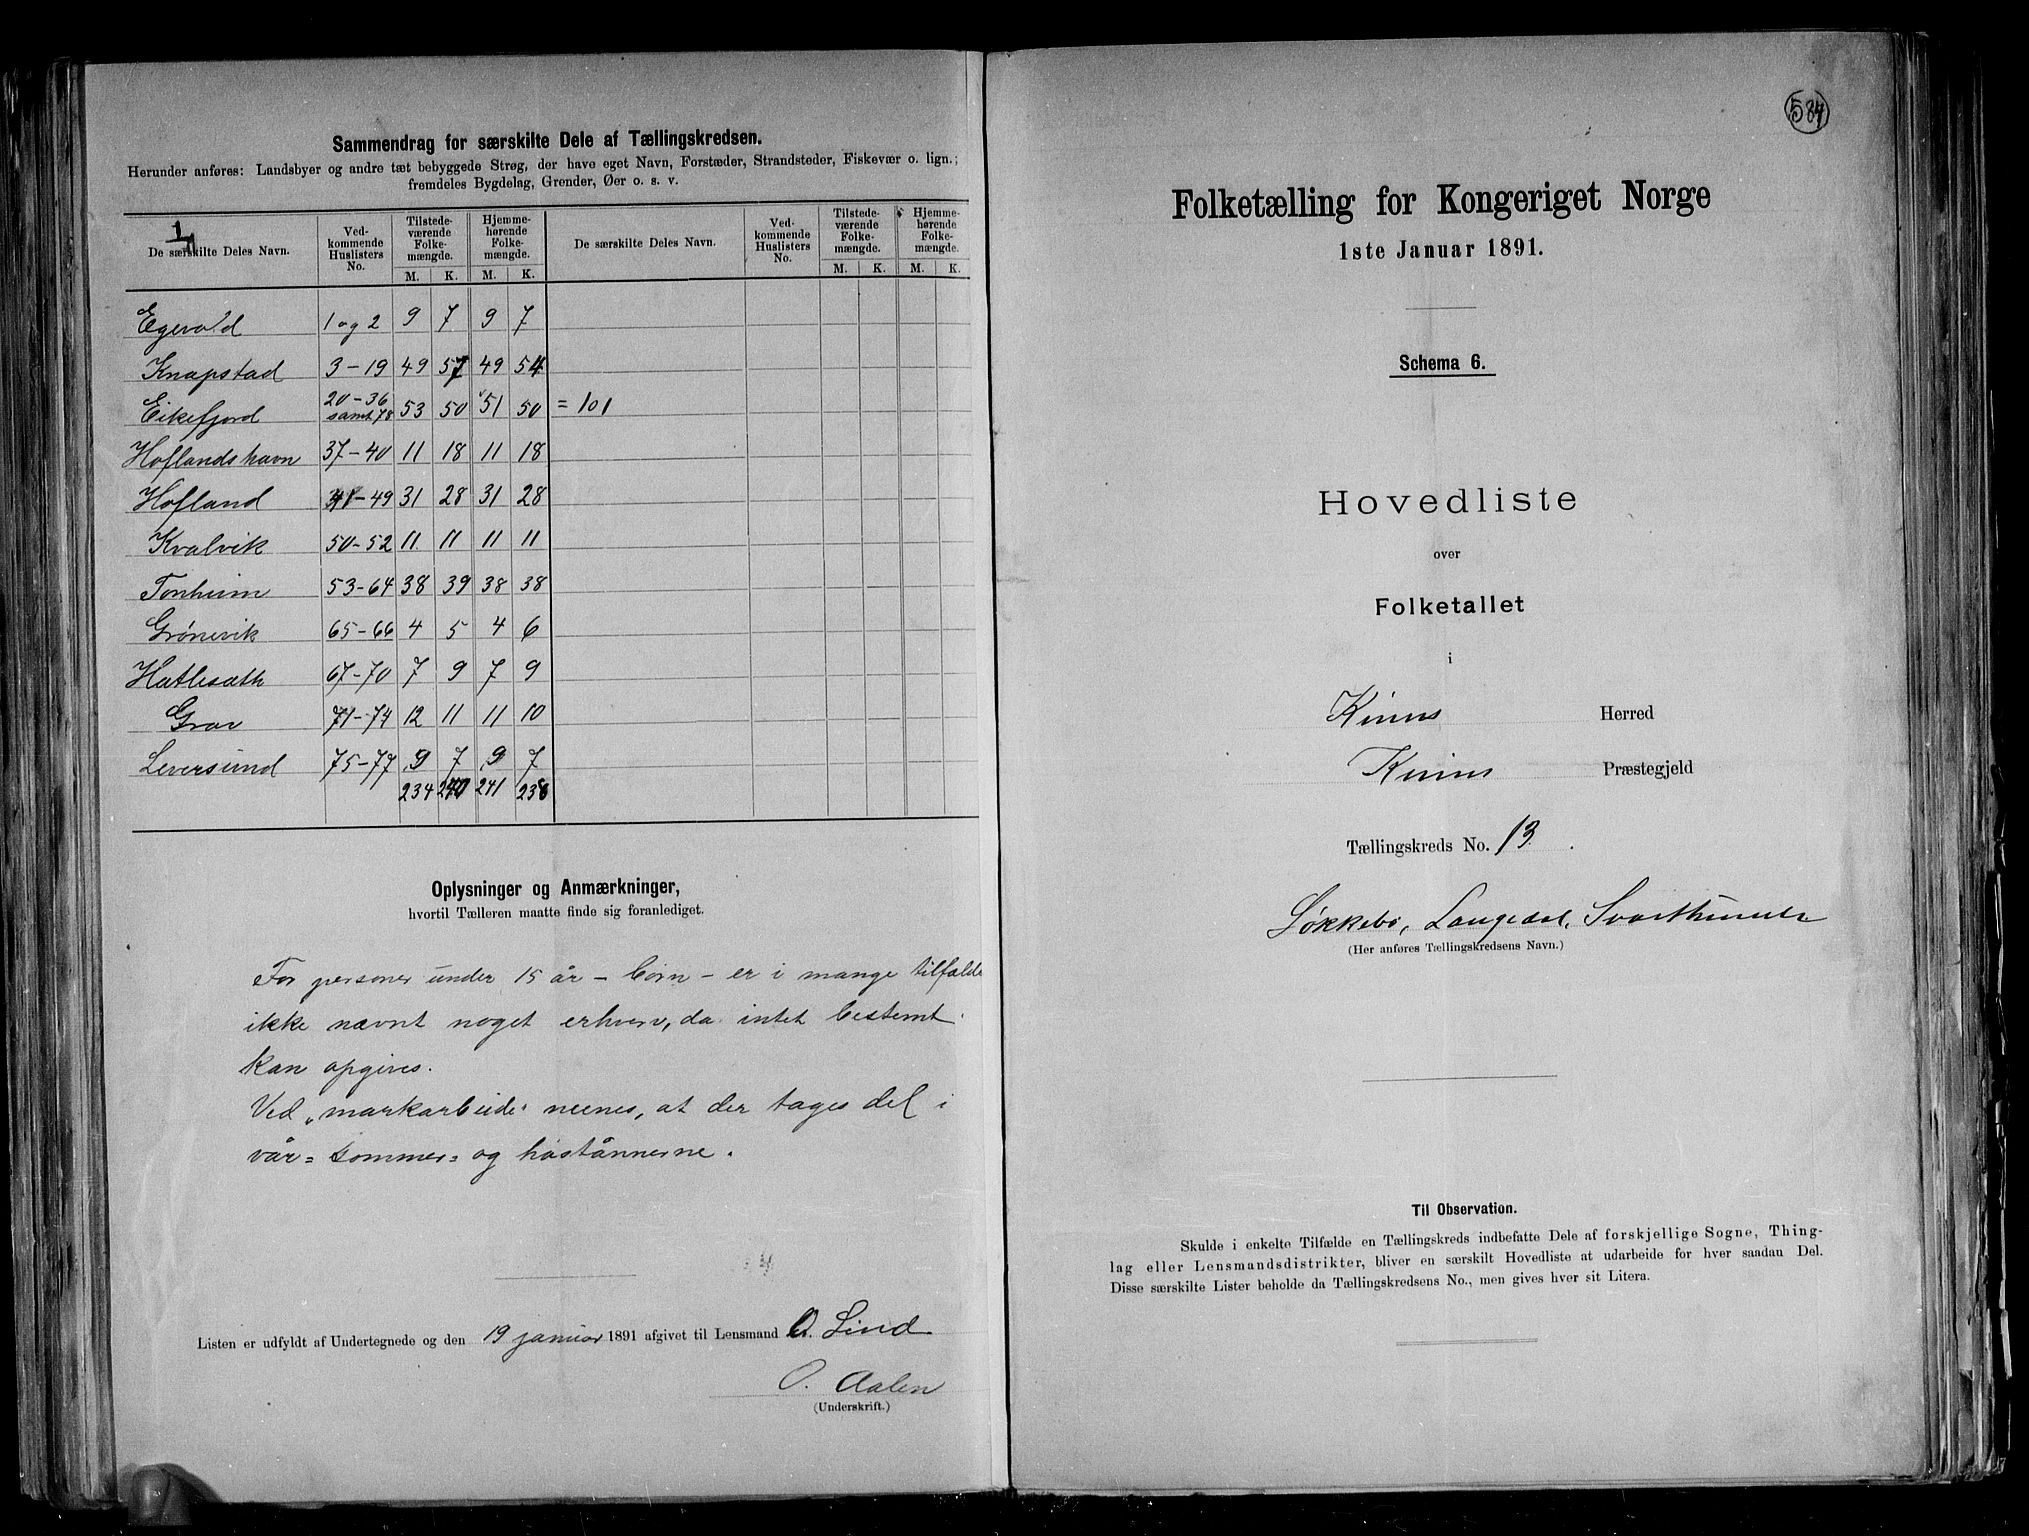 Sammendrag for særskilte Dele af Tællingskredsen.
Herunder anføres: Landsbyer og andre tæt bebyggede Strøg, der have eget Navn, Forstæder, Strandsteder, Fiskevær o. lign.;
fremdeles Bygdelag, Grender, Øer o. s. v.
De særskilte Deles Navn. Ved-kommende Huslisters No. Tilstede-værende Folke-mængde. M. K. Hjemme-hørende Folke-mængde. M. K. De særskilte Deles Navn. Ved-kommende Huslisters No. Tilstede-værende Folke-mængde. M. K. Hjemme-hørende Folke-mængde. M. K.
1 og 2 9 7 9 7
Knapstad 3-19 49 49 54
Eikefjord 20-36 samt 78 53 50 51 50 = 101
Hoflandshavn 37-40 11 18 11 18
Hofland 41-49 31 28 31 28
Kvalvik 50-52 11 11 11 11
Tonheim 53-64 38 39 38 38
Grönevik 65-66 4 5 4 6
67-70 7 9 7 9
Grov 71-74 12 11 11 10
Leversund 75-77 9 7 9 7
234 240 241 238
Oplysninger og Anmærkninger,
hvortil Tælleren maatte finde sig foranlediget.
For personer under 15 år - börn - er i mange tilfælde
ikke nævnt noget erhverv, da intet bestemt
kan opgives.
Ved „markarbeide" menes, at der tages del i
vår= sommer= og høstånnerne.
Listen er udfyldt af Undertegnede og den 19 januar 1891 afgivet til Lensmand O. Lind
O. Aalen
(Underskrift.)
584
Folketælling for Kongeriget Norge
1ste Januar 1891.
Schema 6.
Hovedliste
over
Folketallet
i
Kinns Herred
Kinns Præstegjeld
Tællingskreds No. 13.
Løkkebø, Langedal,
(Her anføres Tællingskredsens Navn.)
Til Observation.
Skulde i enkelte Tilfælde en Tællingskreds indbefatte Dele af forskjellige Sogne, Thing-
lag eller Lensmandsdistrikter, bliver en særskilt Hovedliste at udarbeide for hver saadan Del.
Disse særskilte Lister beholde da Tællingskredsens No., men gives hver sit Litera.